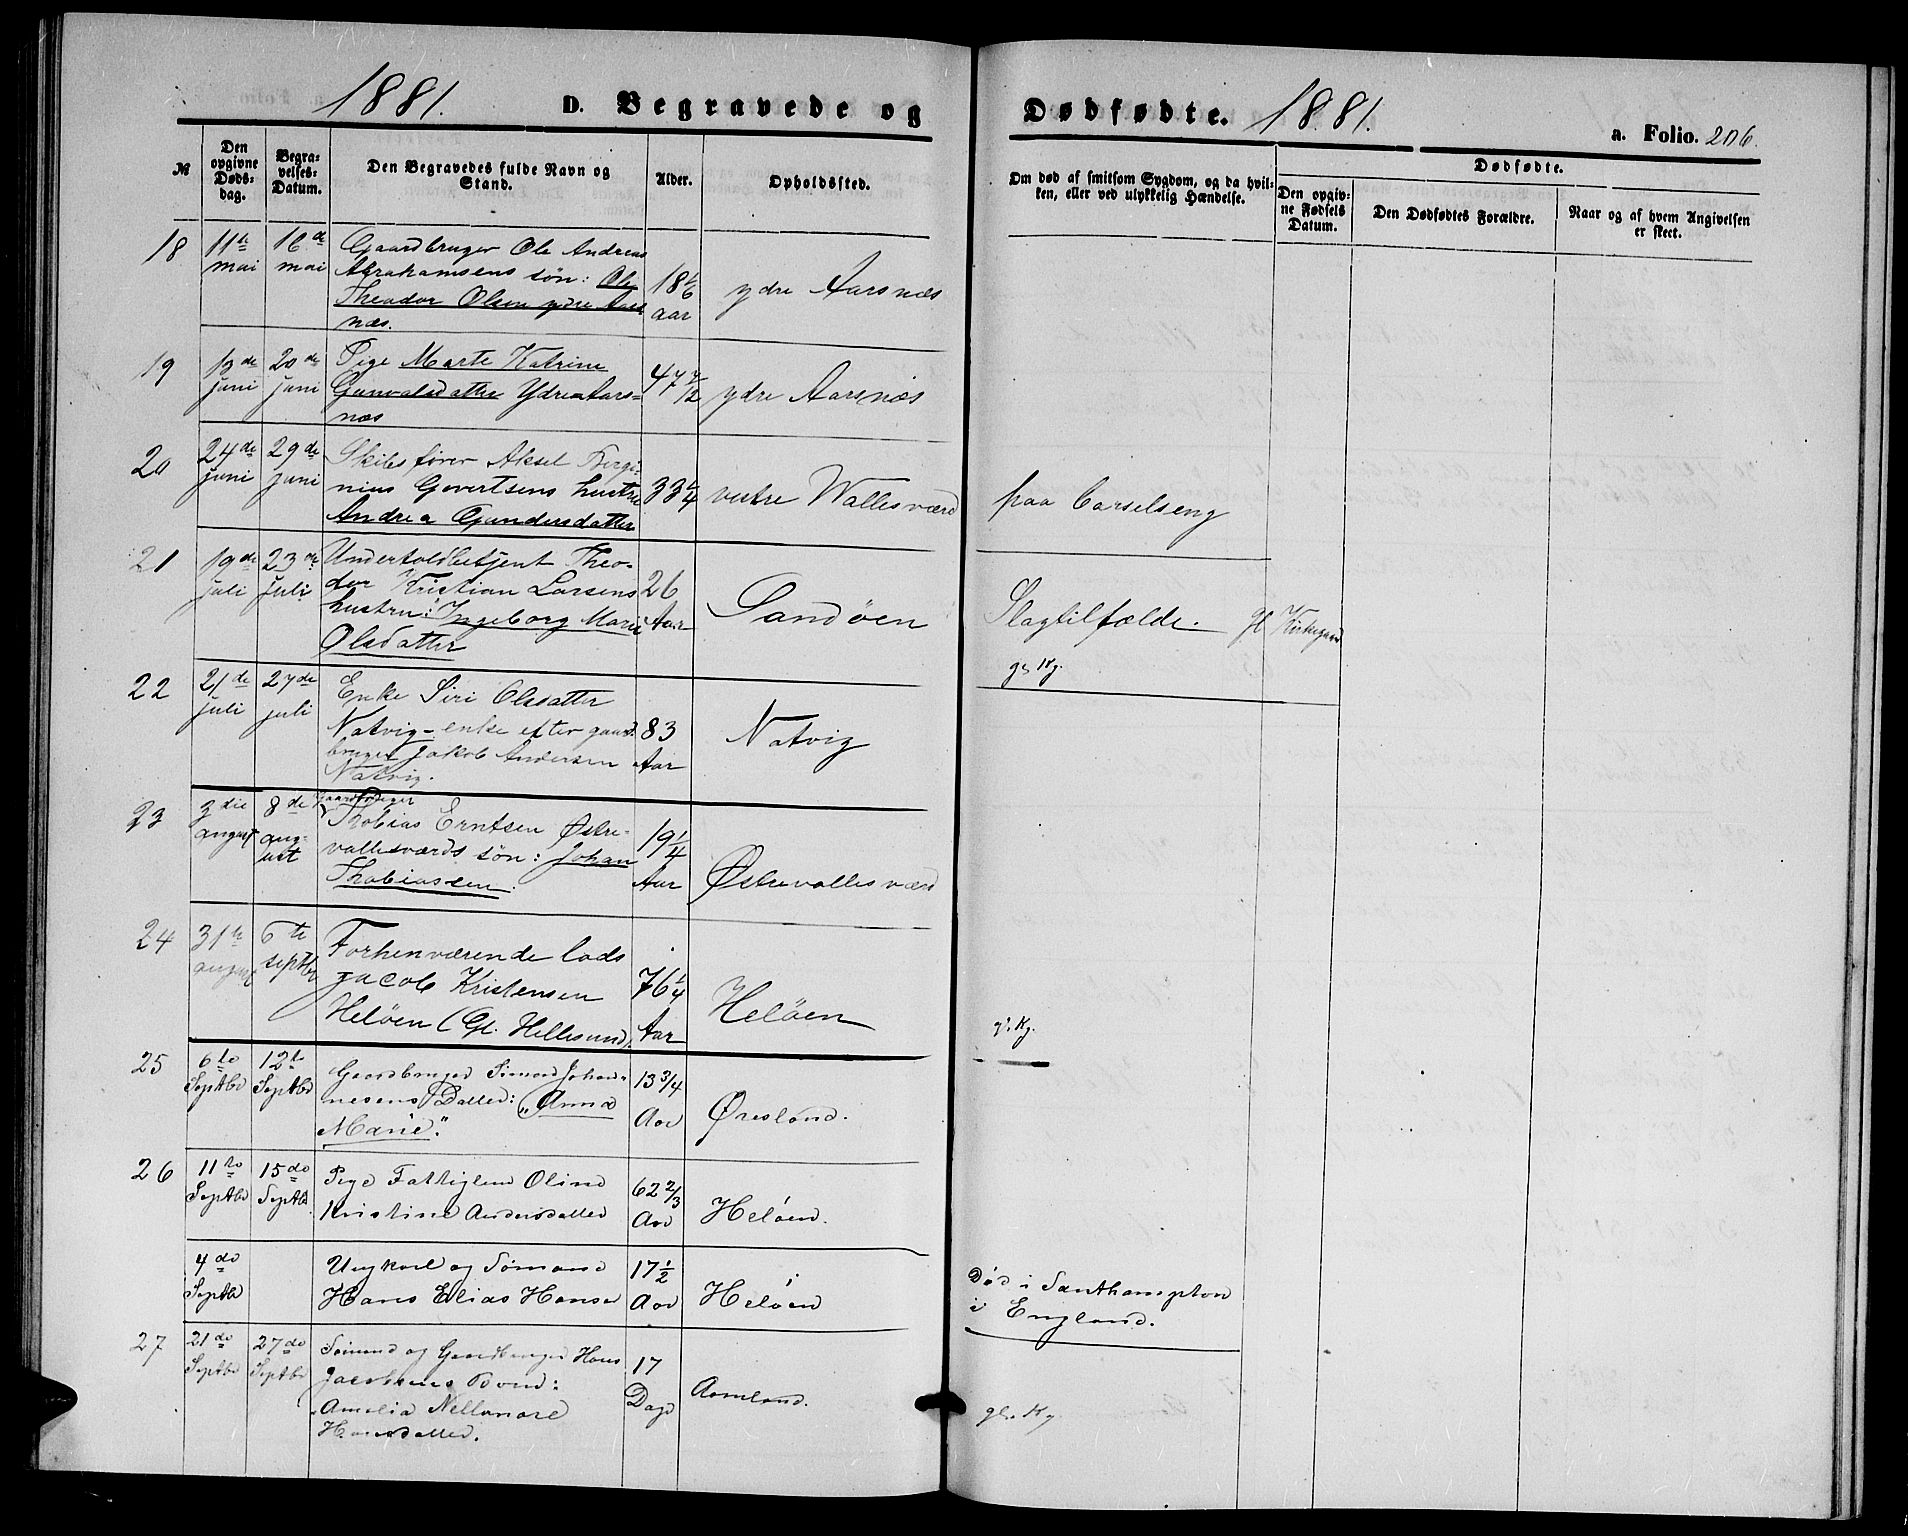 1881. D. Begravede og Dødfødte. 1881. a. Folio. 206.
№
Den opgivne Døds-dag.
Begra-velses-Datum.
Den Begravedes fulde Navn og Stand.
Alder.
Opholdssted.
Om død af smitsom Sygdom, og da hvil-
ken, eller ved ulykkelig Hændelse.
Dødfødte.
Den opgiv-ne Fødsels Datum.
Den Dødfødtes Forældre.
Naar og af hvem Angivelsen er skeet.
18 11te mai 16de mai
Gaardbruger Ole Andreas
Abrahamsens søn: Ole
Theodor Olsen ydre Aars
næs.
18 1/6 aar
ydre Aarsnæs
19 13de juni 20de juni
Pige Marte Katrine
Gunvalsdatter Ydre Aars=
næs
47 7/12
ydre Aarsnæs
20 24de juni 29de juni
Skibsfører Aksel Bergi-
nius Govertsens hustru
Andrea Gundersdatter
33 1/4
vestre Wallesværd
paa Barselseng
21 19de juli 23de juli
Undertoldbetjent Theo-
dor Kristian Larsens
hustru: Ingeborg Marie
Olsdatter
26 Aar
Sandøen
Slagtilfælde. gl Kirkegaard
gl. Kg.
22 21de juli 27de juli
Enke Siri Olsdatter
Natvig - enke efter gaard
bruger Jakob Andersen
Natvig.
83 Aar
Natvig
23 3die august 8de august
Gaardbruger
Thobias Erntsen Østre-
vallesværds søn: Johan
Thobiassen.
19 1/4 Aar
Østrevallesværd
24 31te august 6te septbr
Forhenværende lods
Jacob Kristensen
Heløen (Gl. Hellesund)
76 1/4 Aar
Heløen
gl. Kg.
25 6te Septbr 12te Septbr
Gaardbruger Simon Johan-
nesens Datter: "Anna
Marie".
13 3/4 Aar
Øresland.
26 11te Septbr 15de Septbr
Pige Fattiglem Oline
Kristine Andersdatter
62 2/3 Aar
Heløen.
4de Septbr
Ungkarl og Sømand
Hans Elias Hansen
17 1/2 Aar
Heløen
Død i Santhampton
i England.
27 21de Septbr 27de Septbr
Sømand og Gaardbruger Hans
Jacobsens Barn:
Amalia Nellanore
Hansdatter.
17 Dage
Aamland.
gl. Kg